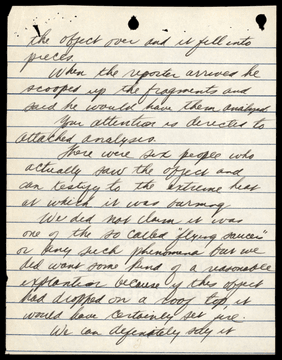 the object over and it fell into
pieces.
When the reporter arrived he
scooped up the fragments and
said he would have them analyzed.
Your attention is directed to
attached analysis.
There were six people who
actually saw the object and
can testify to the extreme heat
at which it was burning
We did not claim it was
one of the so called "flying saucer"
or any such phenomena but we
did want some kind of a reasonable
explantion because if this object
had dropped on a roof top it
would have certainly set fire.
We can definately say it